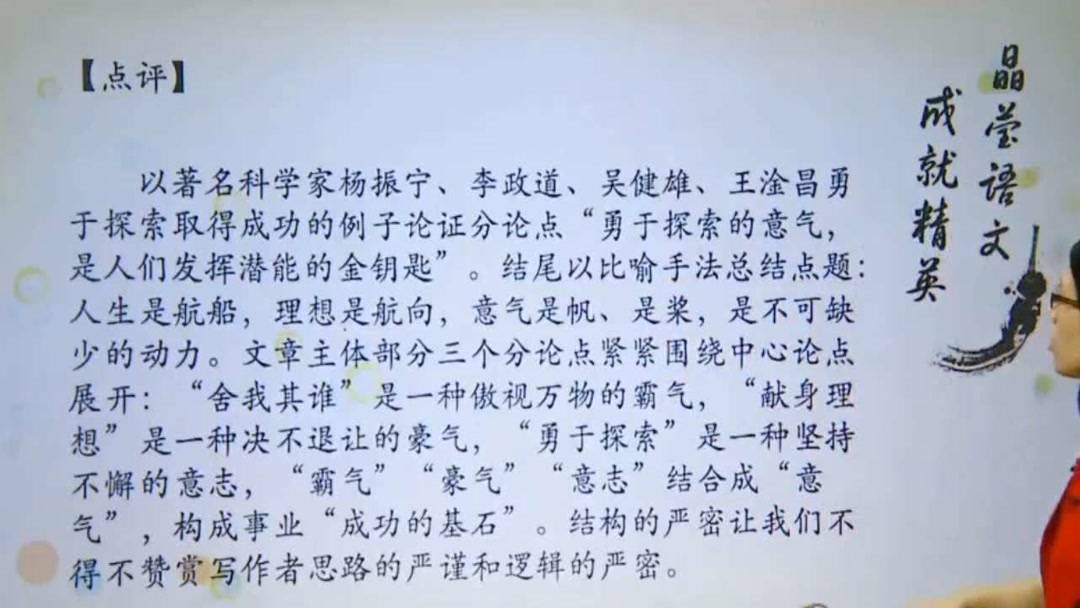 【点评】
以著名科学家杨振宁、李政道、吴健雄、王淦昌勇
于探索取得成功的例子论证分论点“勇于探索的意气，
是人们发挥潜能的金钥匙”。结尾以比喻手法总结点题：
人生是航船，理想是航向，意气是帆、是桨，是不可缺
少的动力。文章主体部分三个分论点紧紧围绕中心论点
展开：“舍我其谁”是一种傲视万物的霸气，“献身理
想”是一种决不退让的豪气，“勇于探索”是一种坚持
不懈的意志，“霸气”“豪气”“意志”结合成“意
气”，构成事业“成功的基石”。结构的严密让我们不
得不赞赏写作者思路的严谨和逻辑的严密。
晶莹语文
成就精英